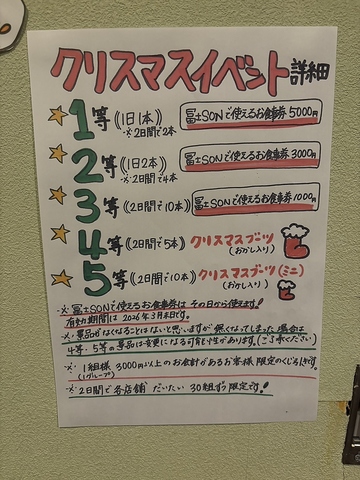 クリスマスイベント詳細
1等 (1日1本) ※2日間で2本 冨士SONで使えるお食事券 5000円
2等 (1日2本) ※2日間で4本 冨士SONで使えるお食事券 3000円
3等 (2日間で10本) 冨士SONで使えるお食事券 1000円
4等 (2日間で5本) クリスマスブーツ (おかし入り)
5等 (2日間で10本) クリスマスブーツ(ミニ) (おかし入り)
※冨士SONで使えるお食事券は その日から使えます!
有効期間は 2026年3月末日です。
※景品がなくなることはないと思いますが 無くなってしまった場合は
4等・5等の景品は変更になる可能性があります。(ご了承ください)
※1組様 3000円以上のお会計があるお客様 限定のくじ引きです。
(1グループ)
※2日間で各店舗 だいたい30組ずつ限定です!